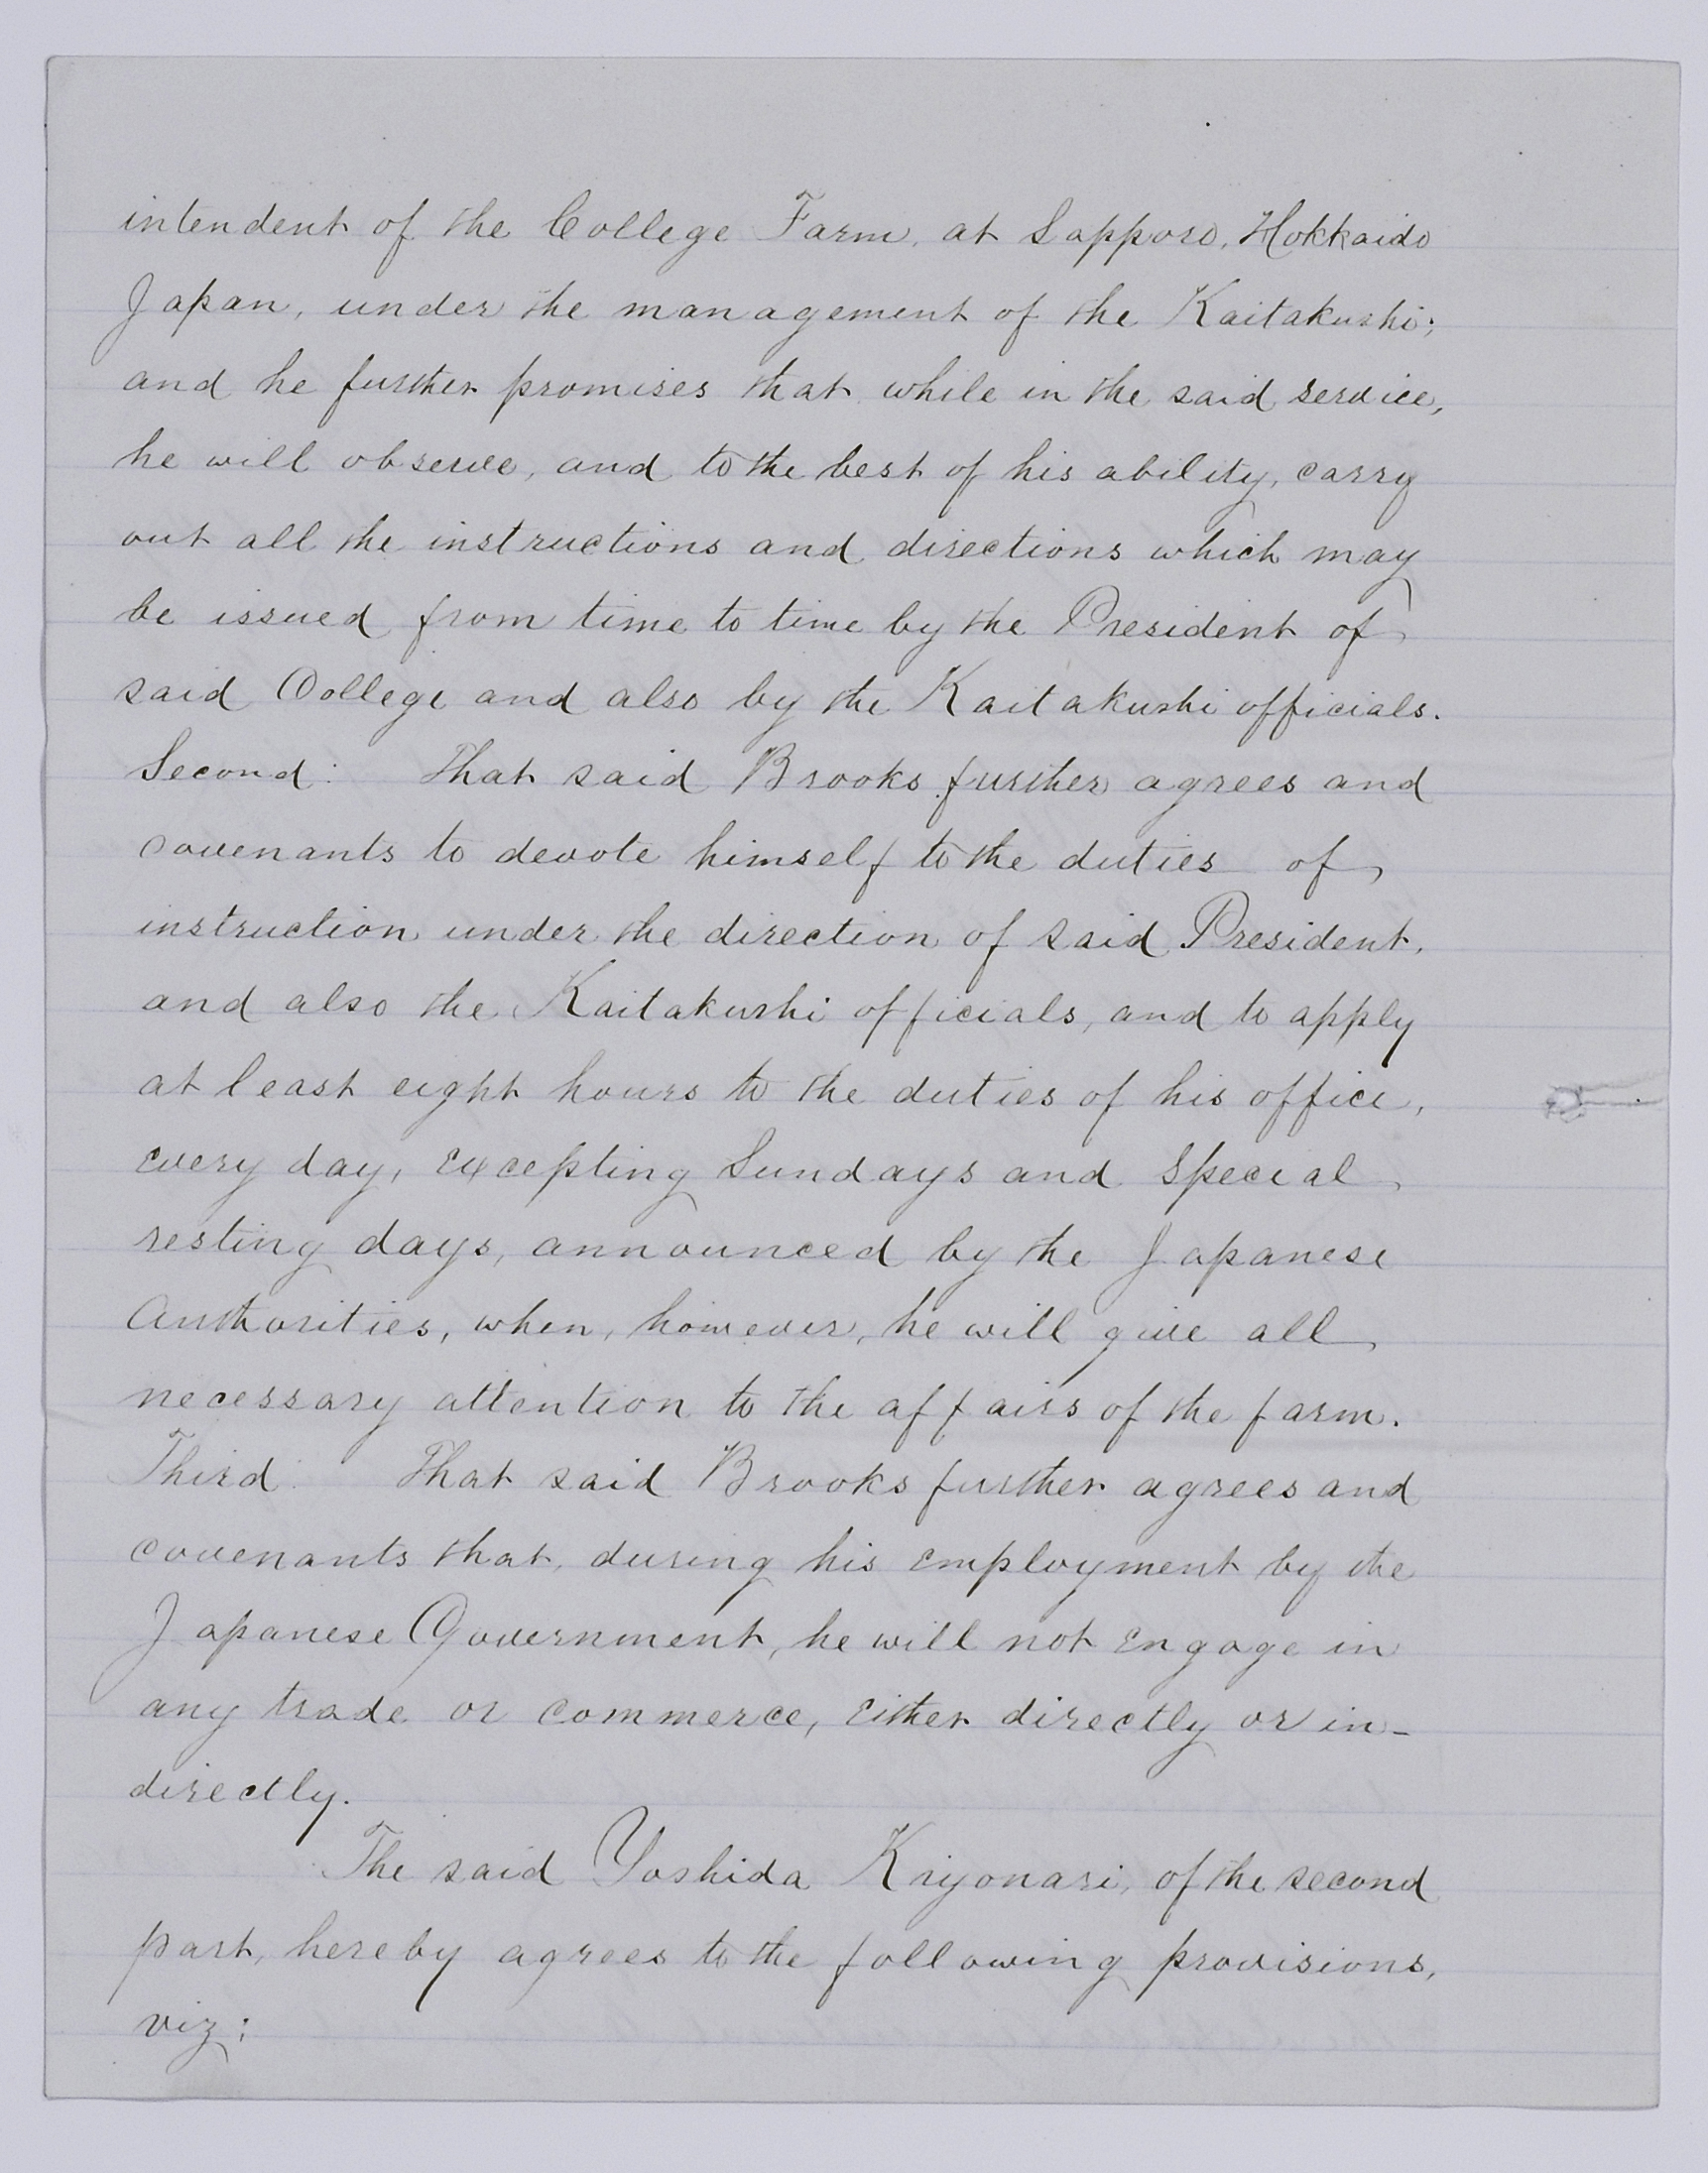 intendent of the College Farm, at Sapporo, Hokkaido
Japan, under the management of the Kaitakushi;
and he further promises that while in the said service,
he will observe, and to the best of his ability, carry
out all the instructions and directions which may
be issued from time to time by the President of
said College and also by the Kaitakushi officials.
Second: That said Brooks further agrees and
covenants to devote himself to the duties of
instruction under the direction of said President,
and also the Kaitakushi officials, and to apply
at least eight hours to the duties of his office,
every day, excepting Sundays and special
resting days, announced by the Japanese
Authorities, when, however, he will give all
necessary attention to the affairs of the farm.
Third: That said Brooks further agrees and
covenants that, during his employment by the
Japanese Government, he will not engage in
any trade or commerce, either directly or in-
directly.
The said Yoshida Kiyonari, of the second
part, hereby agrees to the following provisions,
viz: